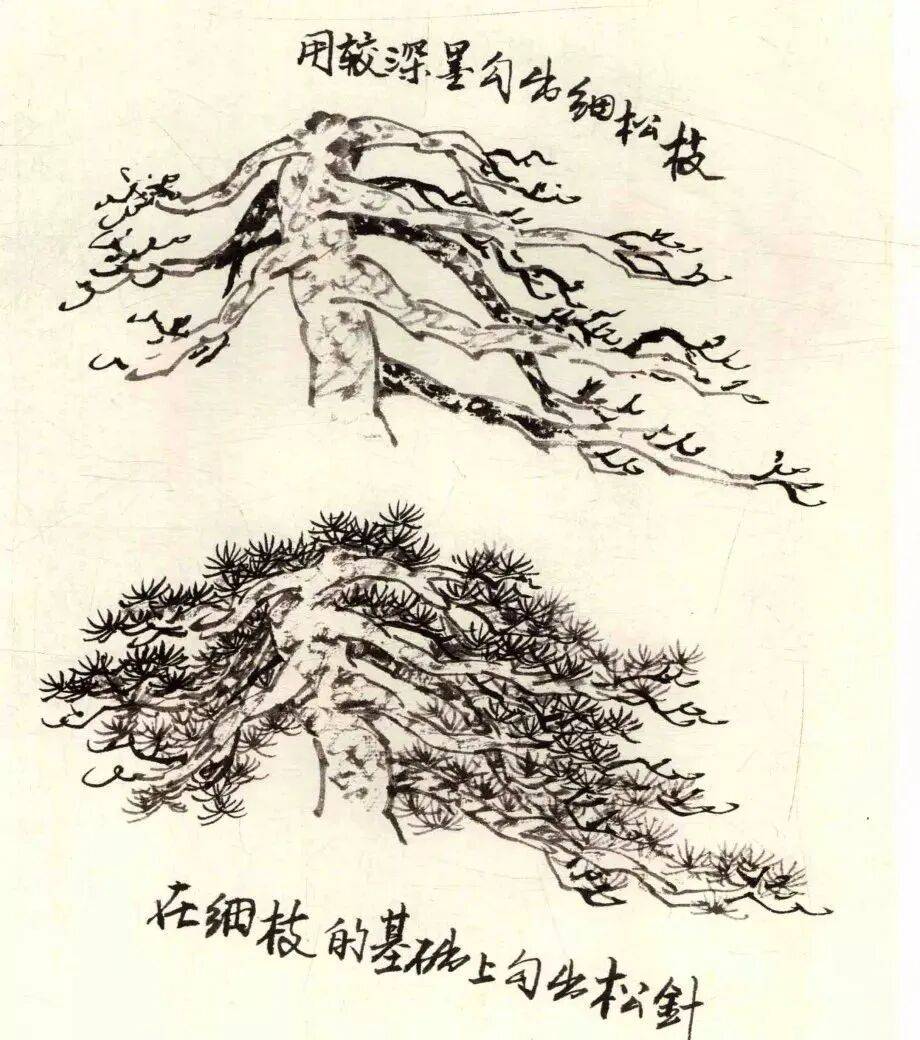 用较深墨勾出细松枝
在细枝的基础上勾出松針